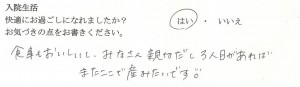 入院生活
快適にお過ごしになれましたか？ はい ・ いいえ
お気づきの点をお書きください。
食事もおいしいし、みなさん親切だし3人目があれば
またここで産みたいです!!